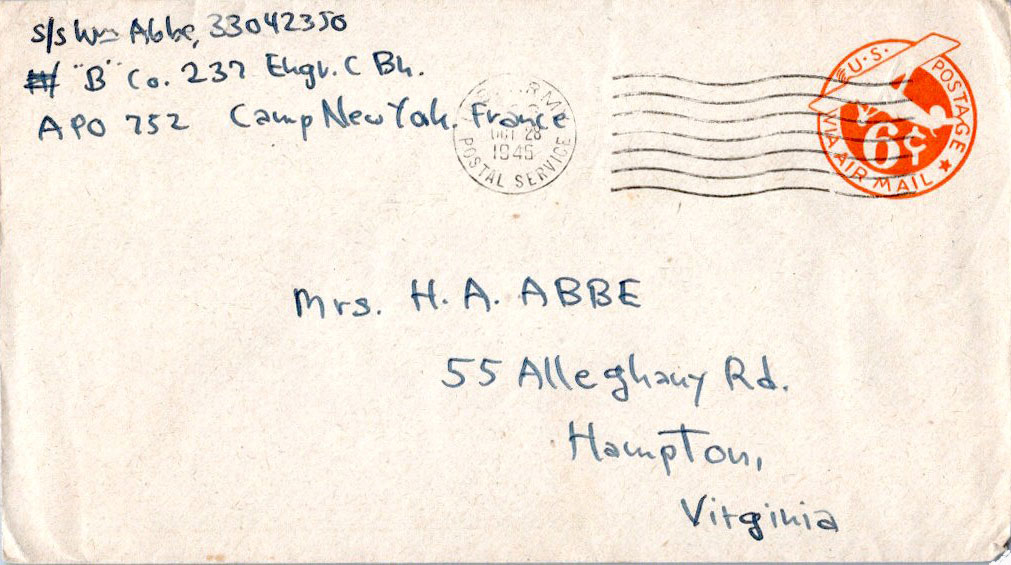 s/s Wm Abbe, 33042350
"B" Co. 237 Engr. C Bn.
APO 752 Camp New York, France
ARMY
OCT 28
1945
POSTAL SERVICE
U.S. POSTAGE
6¢
VIA AIR MAIL
Mrs. H. A. ABBE
55 Alleghany Rd.
Hampton,
Virginia